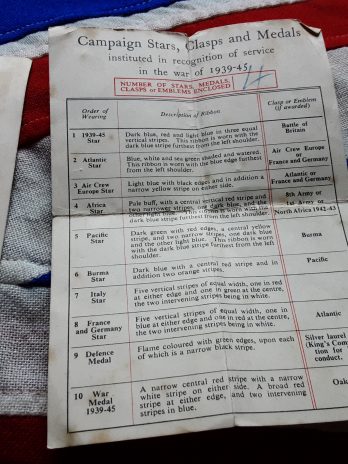 Campaign Stars, Clasps and Medals
instituted in recognition of service
in the war of 1939-45
NUMBER OF STARS, MEDALS,
CLASPS or EMBLEMS ENCLOSED
Order of Wearing
Description of Ribbon
Clasp or Emblem (if awarded)
1 1939-45 Star
Dark blue, red and light blue in three equal
vertical stripes. This ribbon is worn with the
dark blue stripe furthest from the left shoulder.
Battle of Britain
2 Atlantic Star
Blue, white and sea green shaded and watered.
This ribbon is worn with the blue edge furthest
from the left shoulder.
Air Crew Europe or France and Germany
3 Air Crew Europe Star
Light blue with black edges and in addition a
narrow yellow stripe on either side.
Atlantic or France and Germany
4 Africa Star
Pale buff, with a central vertical red stripe and
two narrower stripes, one dark blue, and the
other light blue. This ribbon is worn with the dark
blue stripe furthest from the left shoulder.
8th Army or 1st Army or North Africa 1942-43
5 Pacific Star
Dark green with red edges, a central yellow
stripe, and two narrow stripes, one dark blue
and the other light blue. This ribbon is worn
with the dark blue stripe furthest from the left
shoulder.
Burma
6 Burma Star
Dark blue with a central red stripe and in
addition two orange stripes.
Pacific
7 Italy Star
Five vertical stripes of equal width, one in red
at either edge and one in green at the centre,
the two intervening stripes being in white.
8 France and Germany Star
Five vertical stripes of equal width, one in
blue at either edge and one in red at the centre,
the two intervening stripes being in white.
Atlantic
9 Defence Medal
Flame coloured with green edges, upon each
of which is a narrow black stripe.
Silver laurel
(King's Com
tion for
conduct.
10 War Medal 1939-45
A narrow central red stripe with a narrow
white stripe on either side. A broad red
stripe at either edge, and two intervening
stripes in blue.
Oak